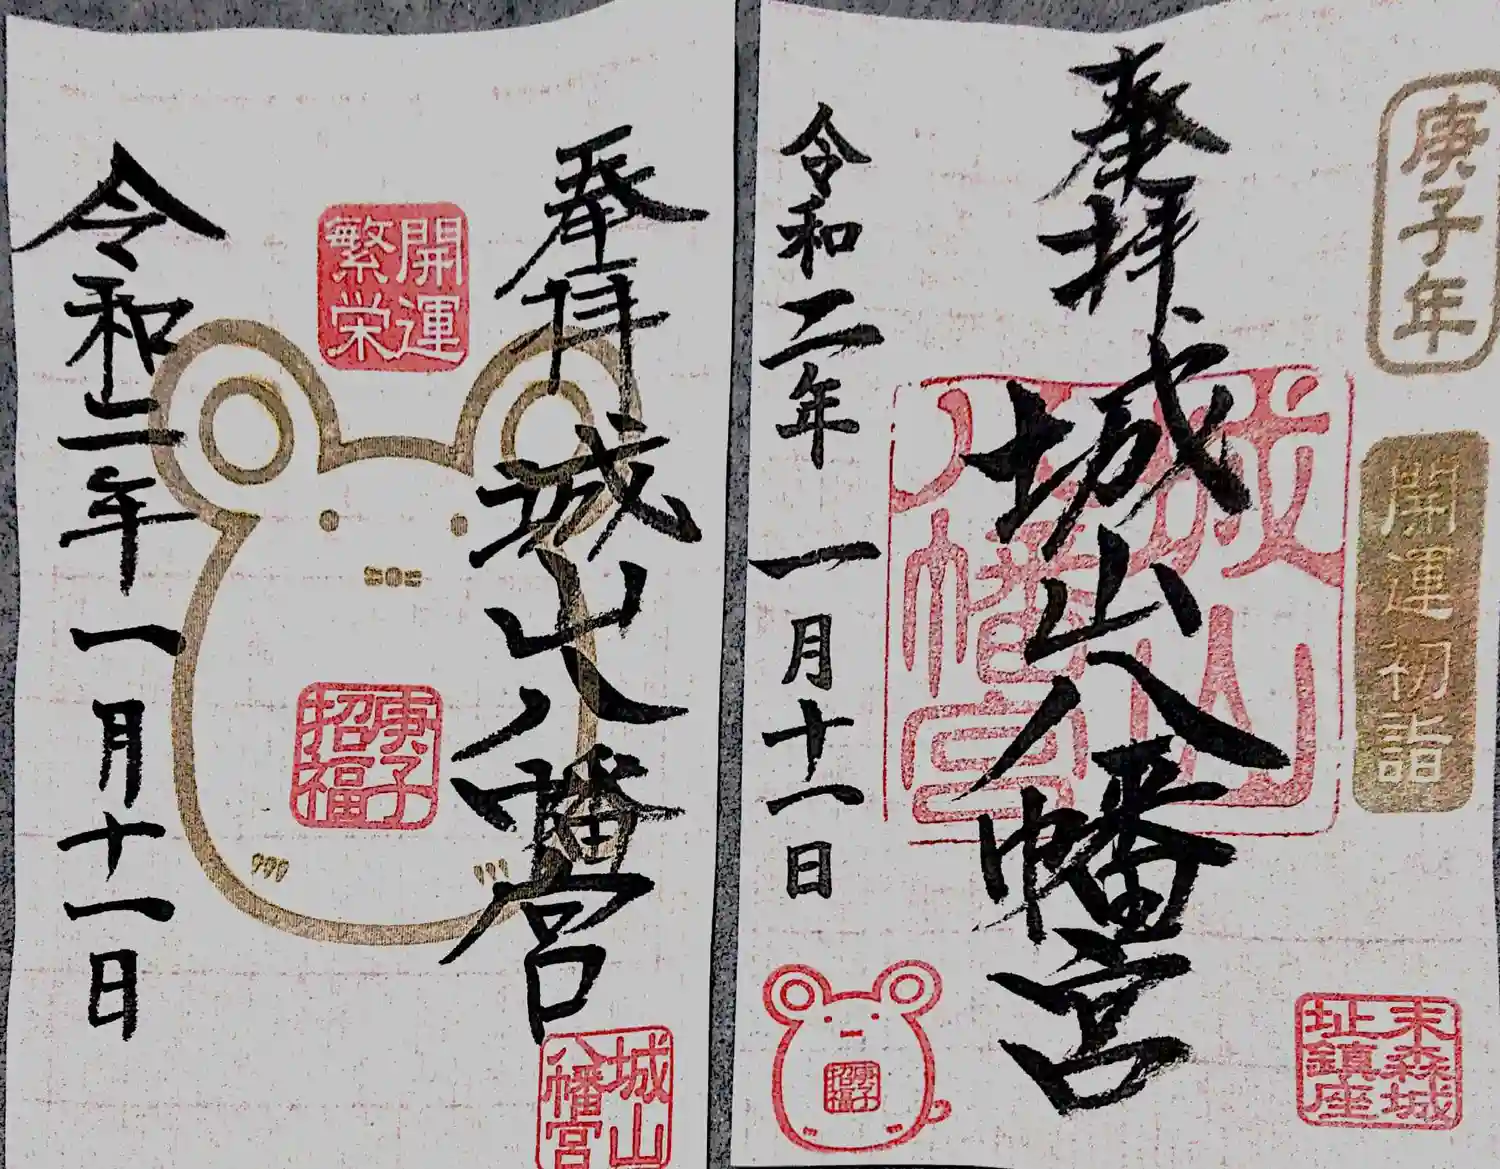 庚子年
開運初詣
末森城
址鎮座
奉拝
城山八幡宮
城山
八幡宮
令和二年 一月十一日
庚子
招福
奉拝
城山八幡宮
城山
八幡宮
開運
繁栄
庚子
招福
令和二年一月十一日